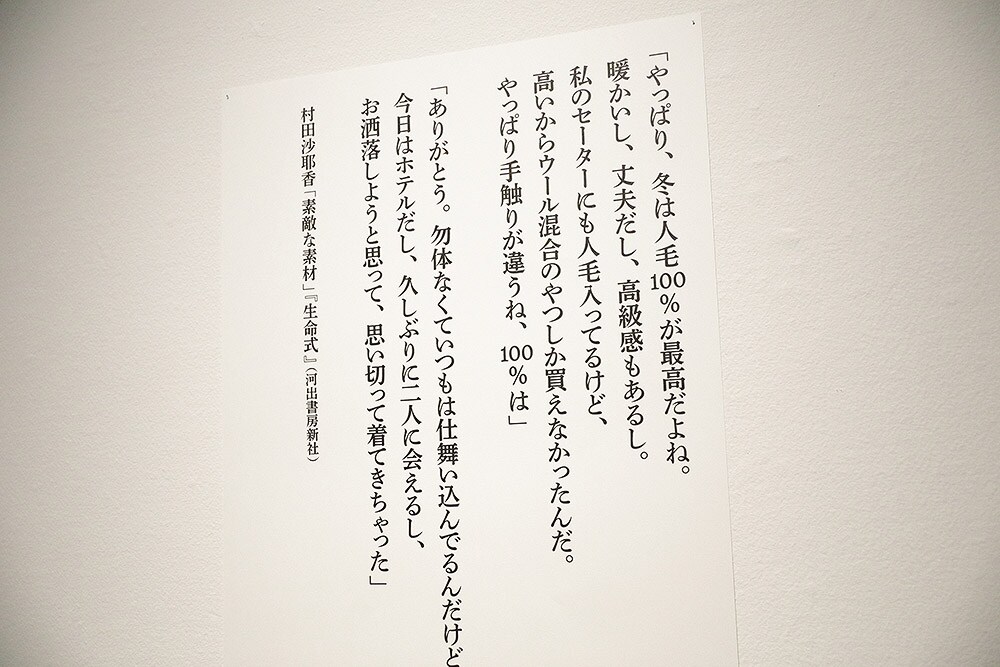 「やっぱり、冬は人毛100%が最高だよね。
暖かいし、丈夫だし、高級感もあるし。
私のセーターにも人毛入ってるけど、
高いからウール混合のやつしか買えなかったんだ。
やっぱり手触りが違うね、100%は」
「ありがとう。勿体なくていつもは仕舞い込んでるんだけど
今日はホテルだし、久しぶりに二人に会えるし、
お洒落しようと思って、思い切って着てきちゃった」
村田沙耶香「素敵な素材」『生命式』（河出書房新社）